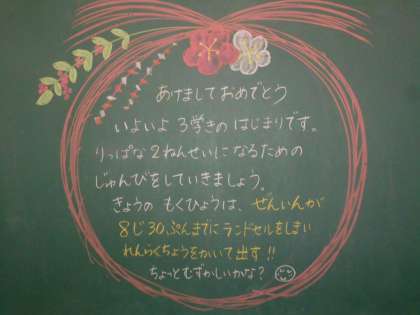 あけましておめでとう
いよいよ 3学きの はじまりです。
りっぱな 2ねんせいに なるための
じゅんびをしていきましょう。
きょうの もくひょうは、ぜんいんが
8じ30ぷんまでに ランドセルをしまい
れんらくちょうをかいて出す!!
ちょっとむずかしいかな?